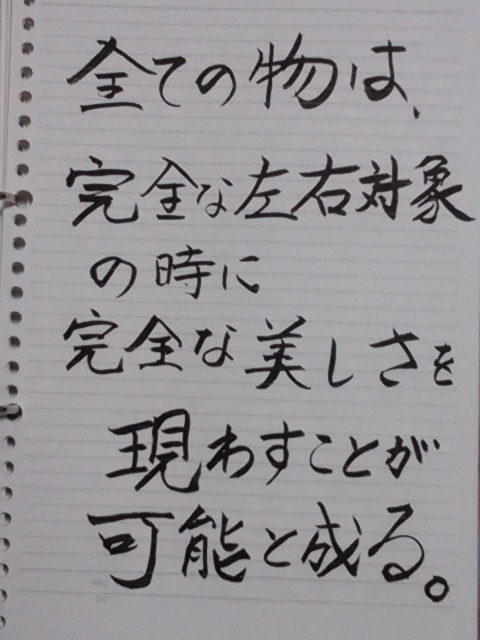 全ての物は、
完全な左右対象
の時に
完全な美しさを
現わすことが
可能と成る。